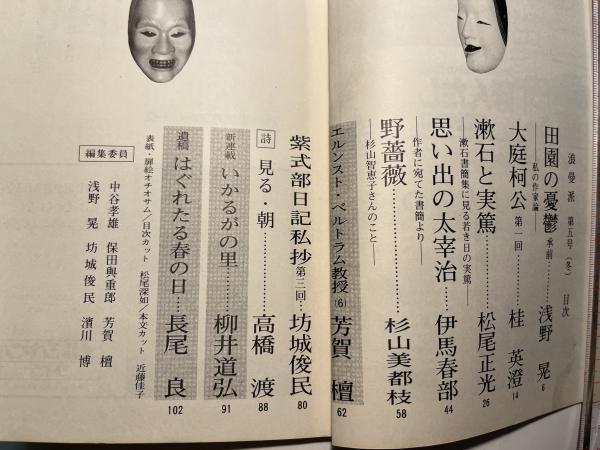 浪曼派 第五号(冬) 目次
田園の憂鬱 承前……浅野 晃 6
私の作家論
大庭柯公 第一回……桂 英澄 14
漱石と実篤……松尾正光 26
―漱石書簡集に見る若き日の実篤―
思い出の太宰治……伊馬春部 44
―作者に宛てた書簡より―
野薔薇……杉山美都枝 58
―杉山智恵子さんのこと―
エルンスト・ベルトラム教授(6) 芳賀 檀 62
紫式部日記私抄 第三回…坊城俊民 80
詩 見る・朝……高橋 渡 88
新連載 いかるがの里……柳井道弘 91
遺稿 はぐれたる春の日…長尾 良 102
表紙・扉絵オチオサム/目次カット 松尾深如/本文カット 近藤佳子
編集委員
中谷孝雄 保田與重郎 芳賀 檀
浅野 晃 坊城俊民 濱川 博